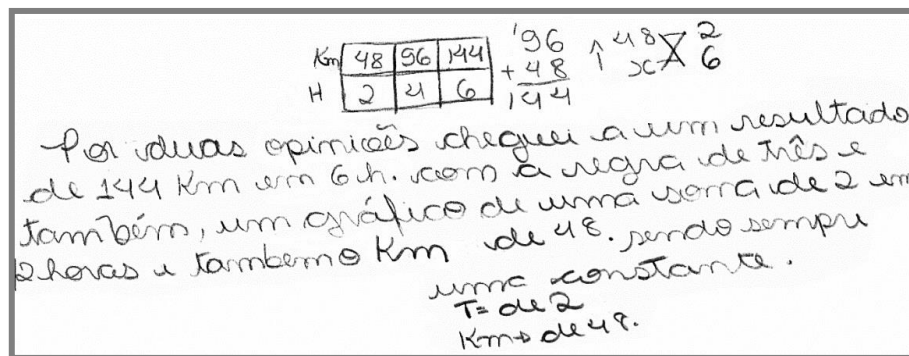 Km 48 96 144
H 2 4 6
96
+ 48
144
↑ 48 2
x 6
Por duas opiniões cheguei a um resultado
de 144 Km em 6 h. com a regra de três e
também, um gráfico de uma soma de 2 em
2 horas e também o Km de 48. sendo sempre
uma constante.
T= de 2
Km→ de 48.